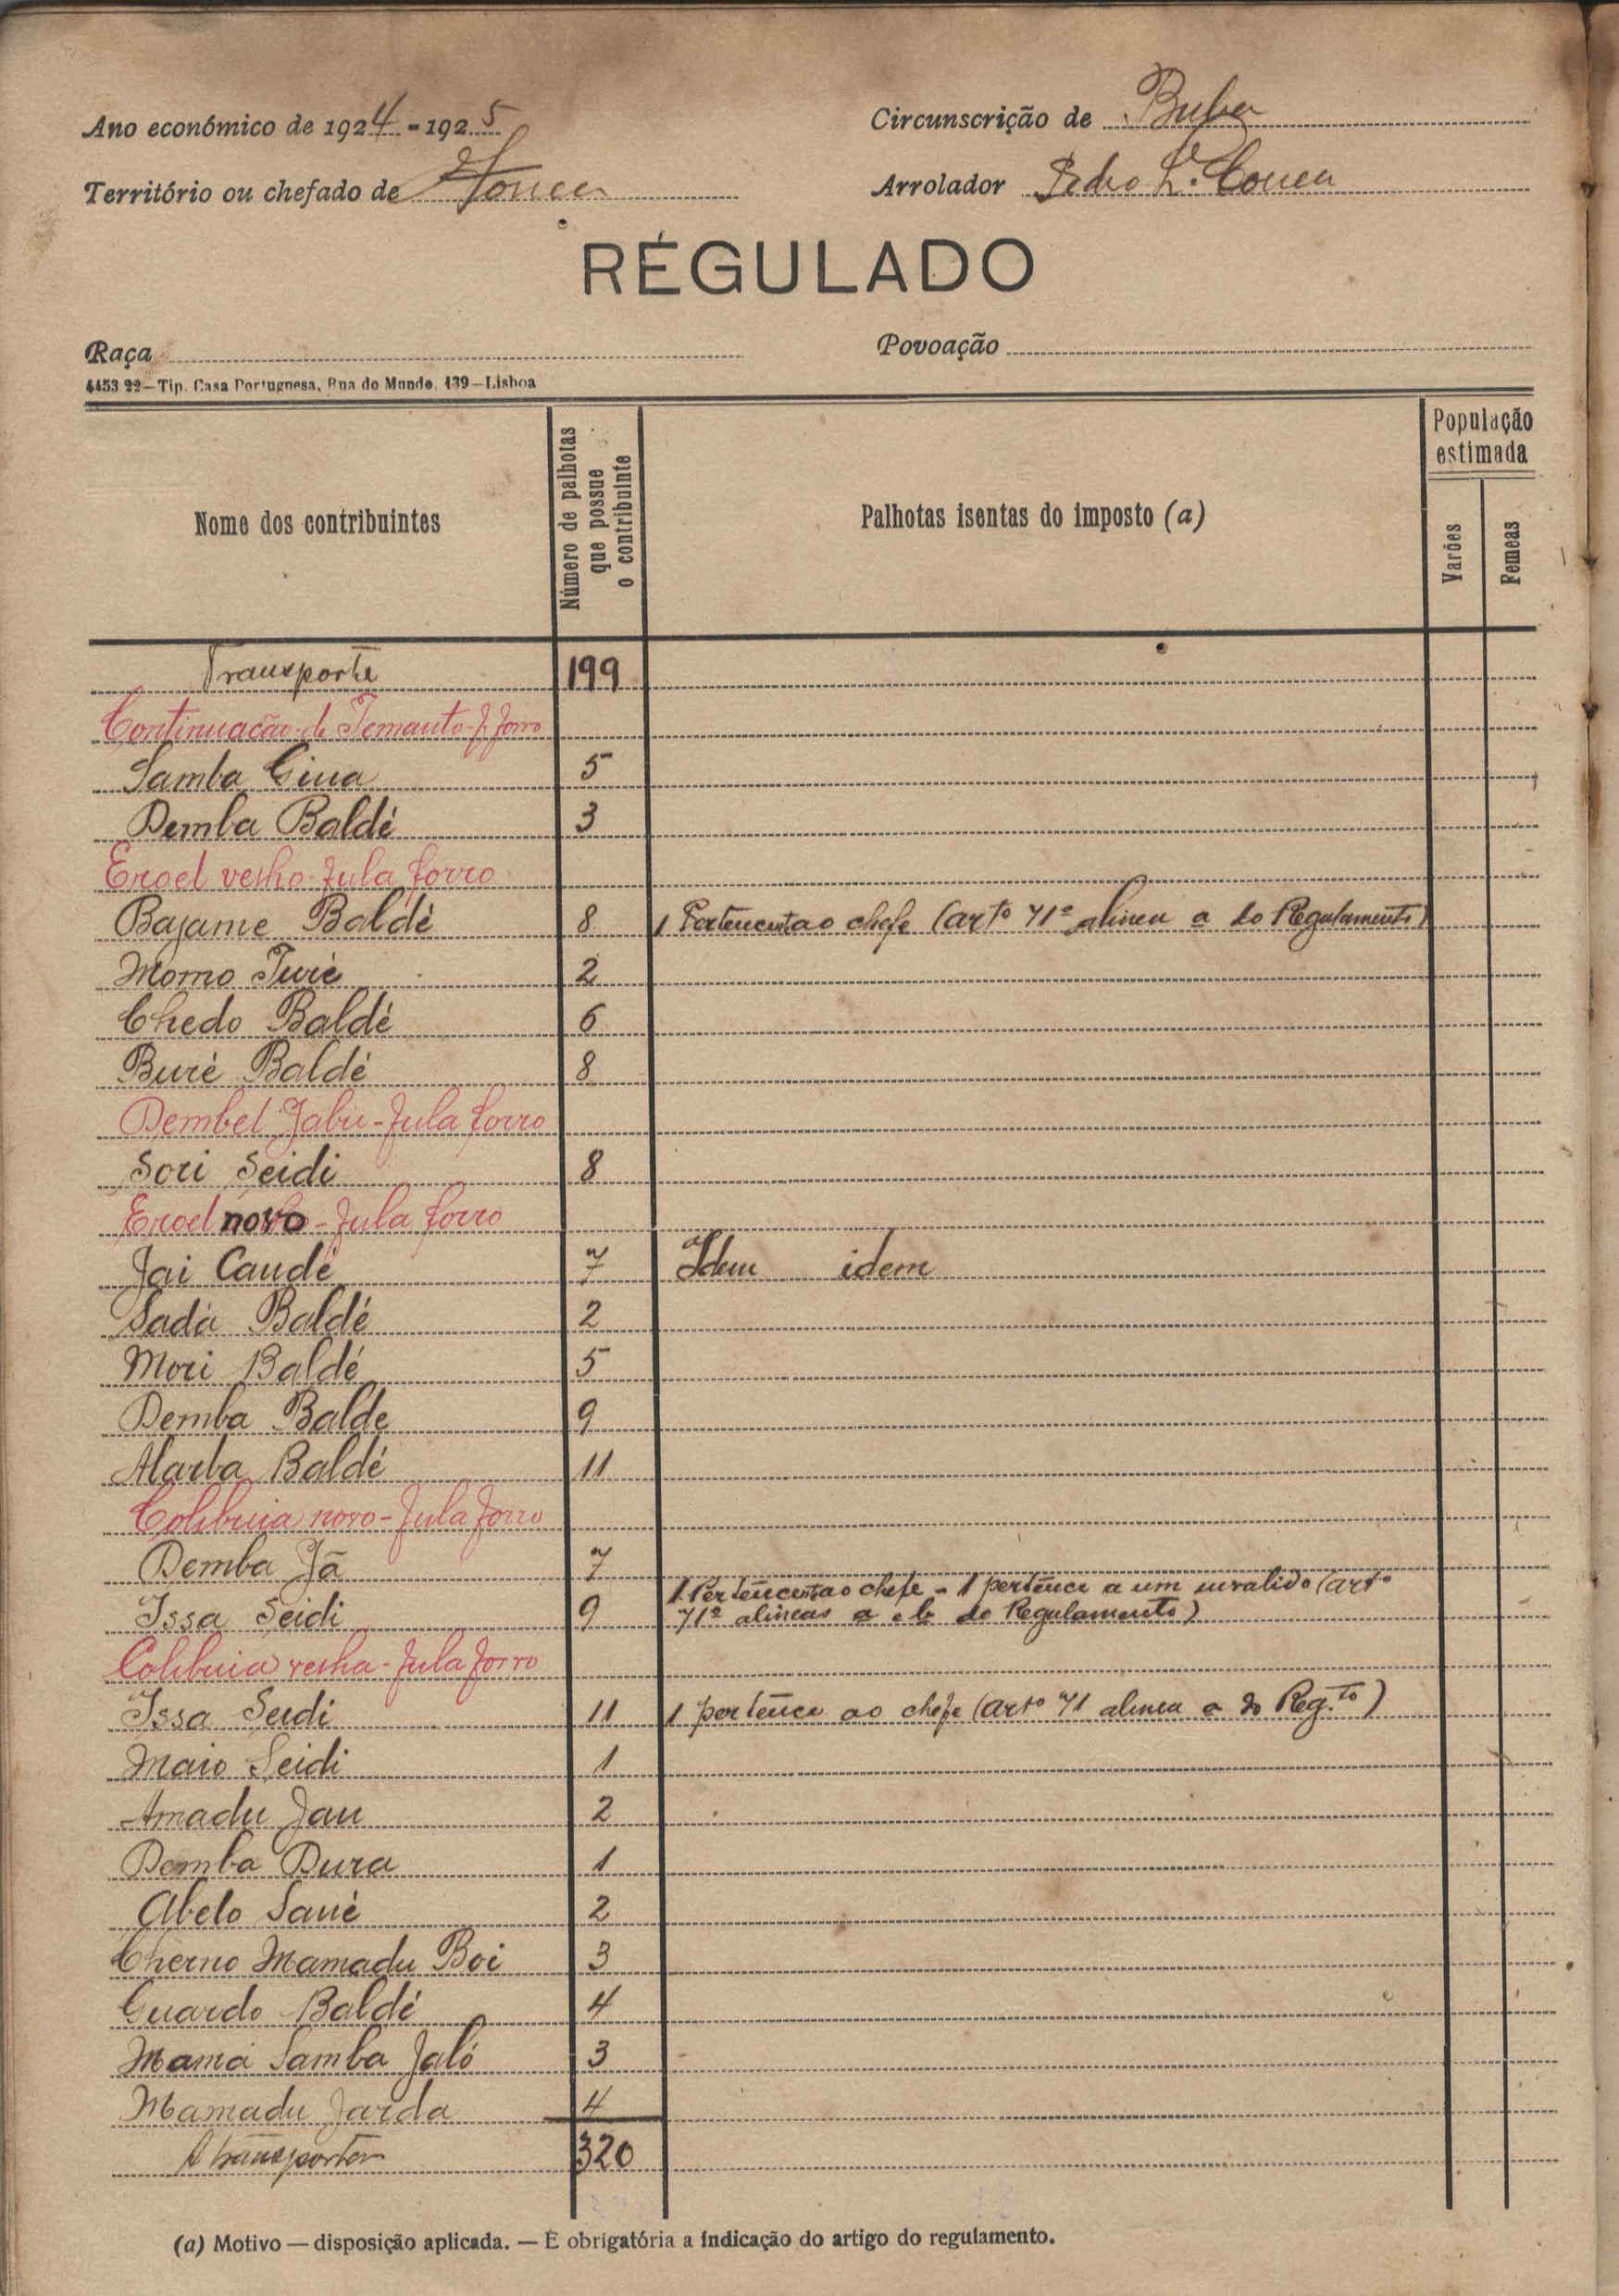 Ano económico de 1924-1925
Circunscrição de Buba
Território ou chefado de
Arrolador Pedro
RÉGULADO
Raça
Povoação
4453 22—Tip. Casa Portuguesa, Rua do Mundo, 139—Lisboa
Nome dos contribuintes
Número de palhotas que possue o contribuinte
Palhotas isentas do imposto (a)
População estimada
Varões
Femeas
Transporte 199
Continuação de
Samba 5
Demba Baldé 3
Eroel velho-Fula forro
Bajame Baldé 8 1 Pertencente ao chefe (artº 71º alinea a do Regulamento)
Momo Turé 2
Chedo Baldé 6
Buré Baldé 8
Dembel Jabu-Fula forro
Sori Seidi 8
Eroel novo-Fula forro
Jai Candé 7 Idem idem
Sadá Baldé 2
Mori Baldé 5
Demba Balde 9
Baldé 11
Colibuia novo-Fula forro
Demba Jã 7
1 Pertencente ao chefe - 1 pertence a um invalido (artº
Issa Seidi 9 71º alineas a e b do Regulamento)
Colibuia velha-Fula forro
Issa Seidi 11 1 pertence ao chefe (artº 71 alinea a do Reg.to)
Maio Seidi 1
Amadu Jau 2
Demba Dura 1
Abelo Sané 2
Cherno Mamadu Boi 3
Guardo Baldé 4
Mamá Samba Jaló 3
Mamadu Jarda 4
A transportar 320
(a) Motivo — disposição aplicada. — É obrigatória a indicação do artigo do regulamento.